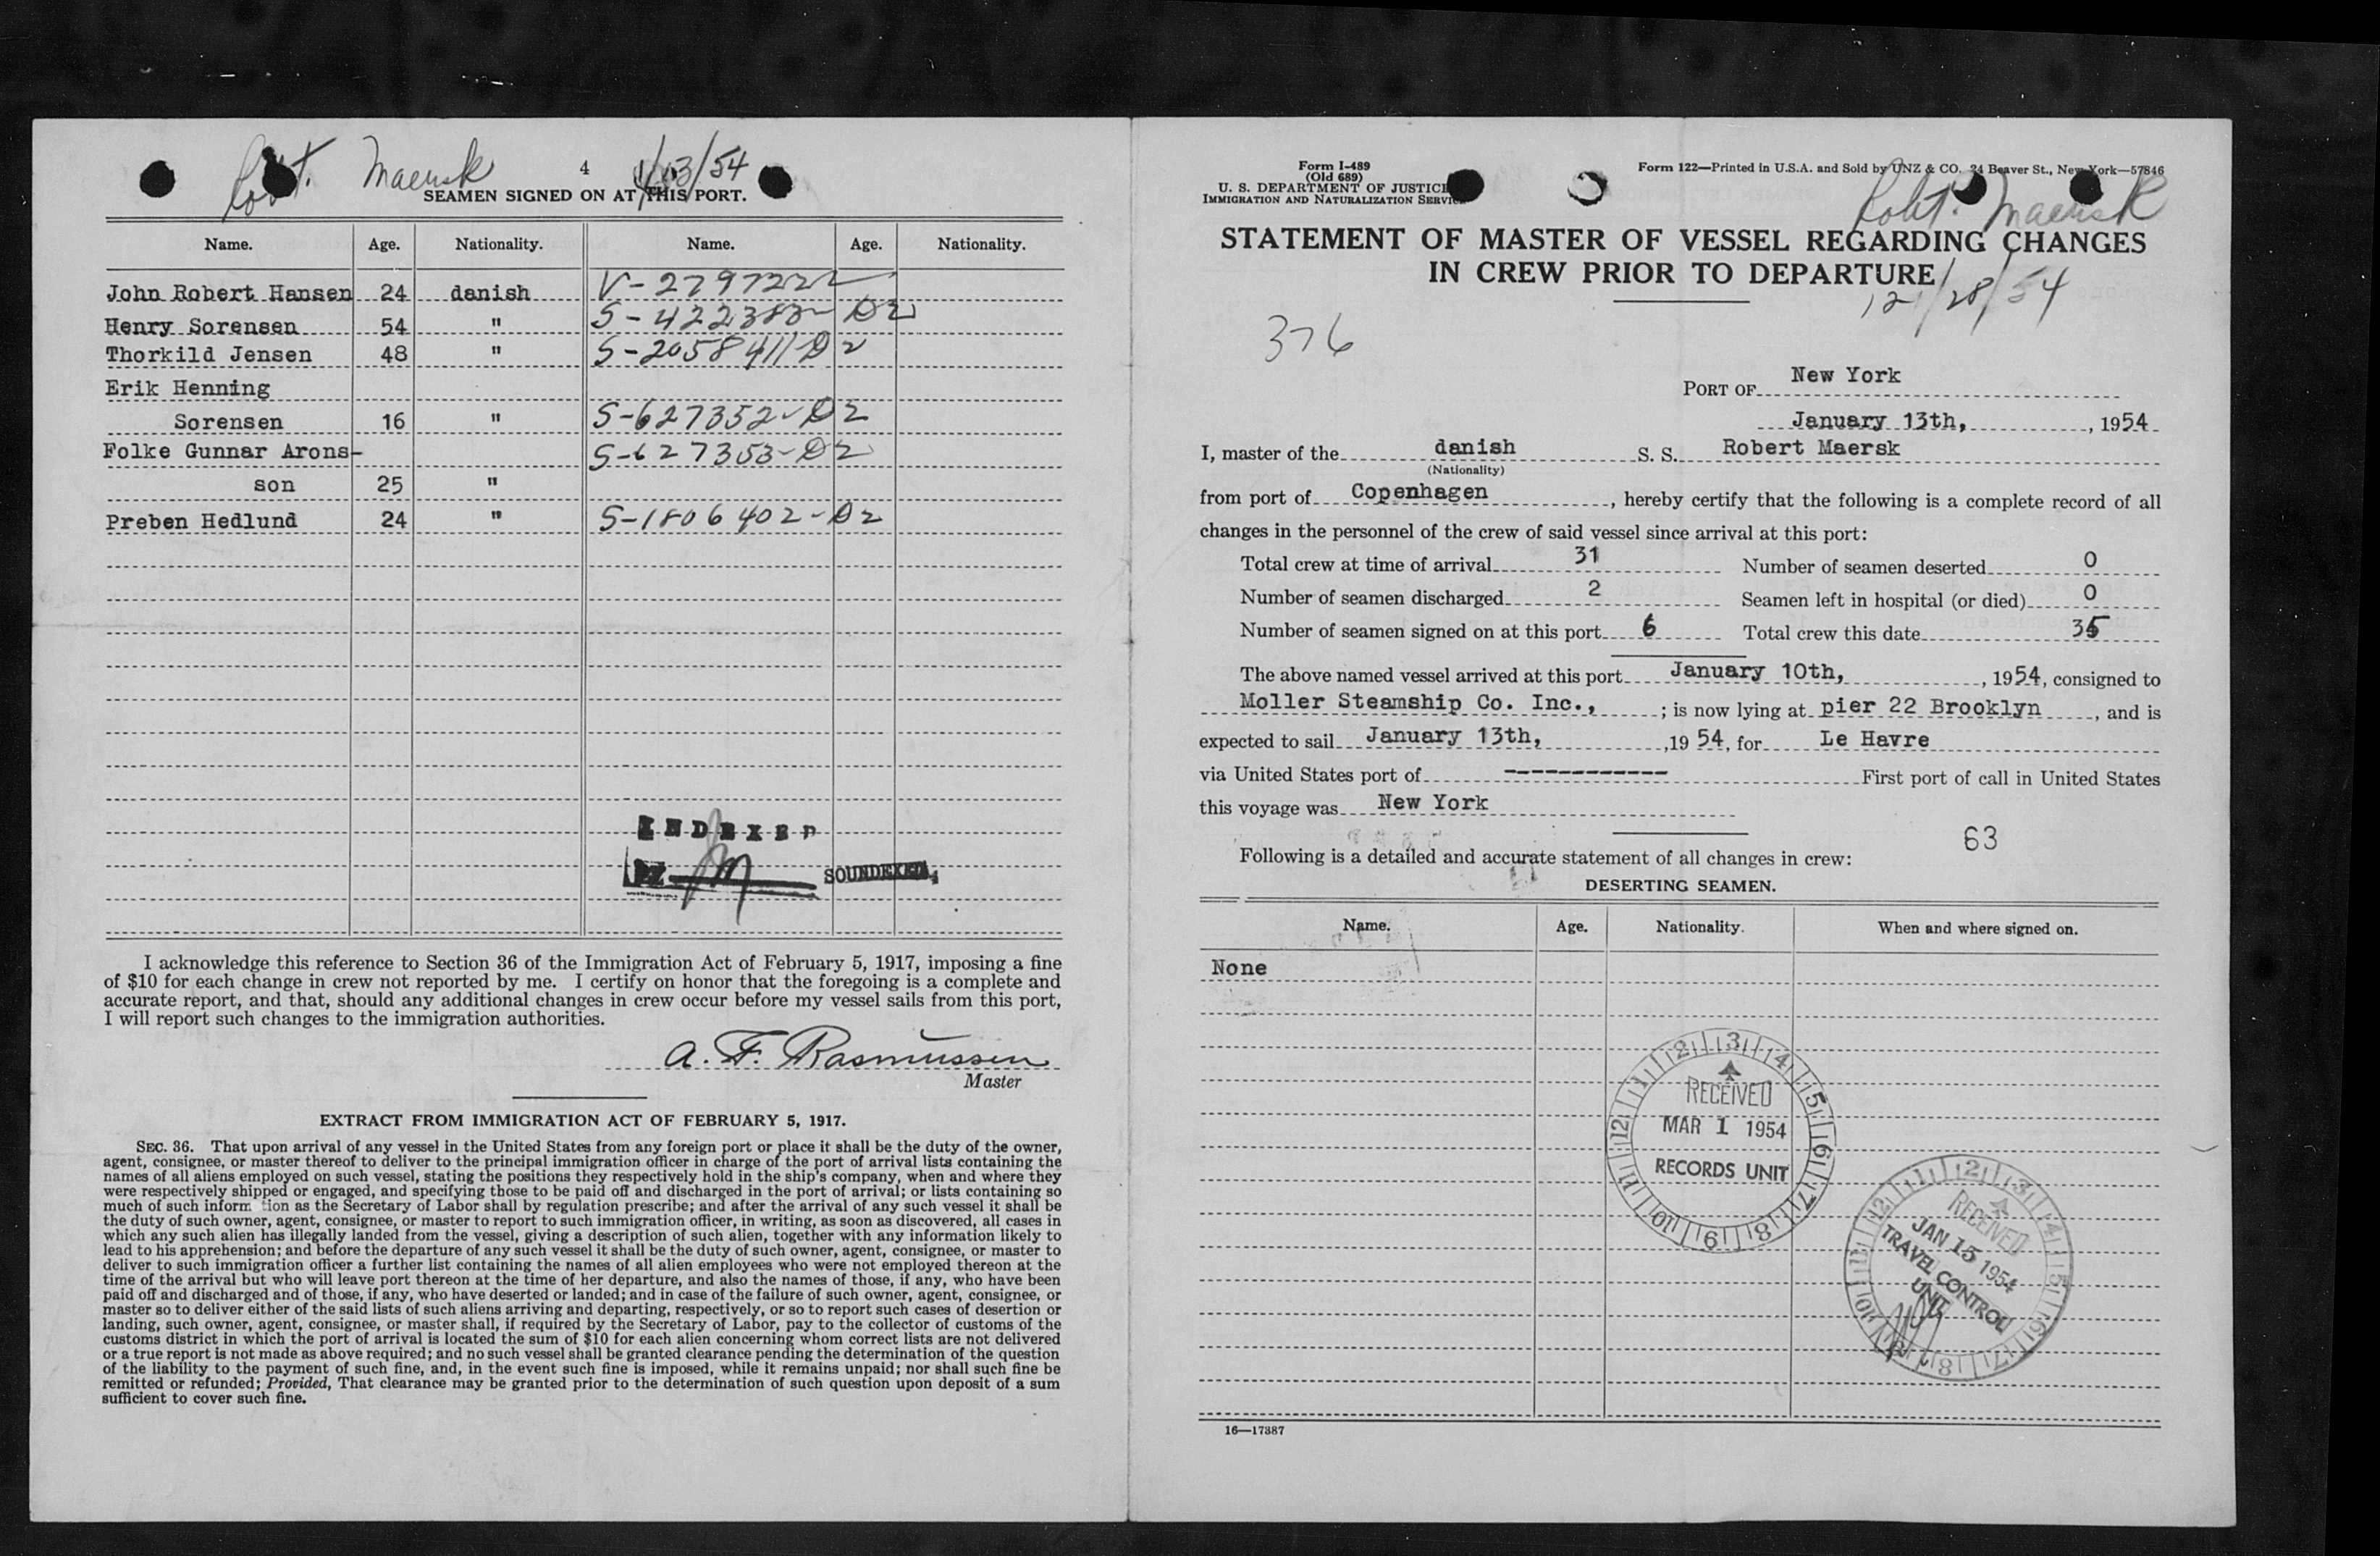 Robt. Maersk 4 1/13/54
SEAMEN SIGNED ON AT THIS PORT.
Name. Age. Nationality. Name. Age. Nationality.
John Robert Hansen 24 danish V-2797222
Henry Sorensen 54 " S-422383-D2
Thorkild Jensen 48 " S-2058411-D2
Erik Henning
Sorensen 16 " S-627352-D2
Folke Gunnar Arons- S-627353-D2
son 25 "
Preben Hedlund 24 " S-1806402-D2
INDEXED
BY M SOUNDEXED,
I acknowledge this reference to Section 36 of the Immigration Act of February 5, 1917, imposing a fine
of $10 for each change in crew not reported by me. I certify on honor that the foregoing is a complete and
accurate report, and that, should any additional changes in crew occur before my vessel sails from this port,
I will report such changes to the immigration authorities.
A. F. Rasmussen
Master
EXTRACT FROM IMMIGRATION ACT OF FEBRUARY 5, 1917.
SEC. 36. That upon arrival of any vessel in the United States from any foreign port or place it shall be the duty of the owner,
agent, consignee, or master thereof to deliver to the principal immigration officer in charge of the port of arrival lists containing the
names of all aliens employed on such vessel, stating the positions they respectively hold in the ship's company, when and where they
were respectively shipped or engaged, and specifying those to be paid off and discharged in the port of arrival; or lists containing so
much of such inform tion as the Secretary of Labor shall by regulation prescribe; and after the arrival of any such vessel it shall be
the duty of such owner, agent, consignee, or master to report to such immigration officer, in writing, as soon as discovered, all cases in
which any such alien has illegally landed from the vessel, giving a description of such alien, together with any information likely to
lead to his apprehension; and before the departure of any such vessel it shall be the duty of such owner, agent, consignee, or master to
deliver to such immigration officer a further list containing the names of all alien employees who were not employed thereon at the
time of the arrival but who will leave port thereon at the time of her departure, and also the names of those, if any, who have been
paid off and discharged and of those, if any, who have deserted or landed; and in case of the failure of such owner, agent, consignee, or
master so to deliver either of the said lists of such aliens arriving and departing, respectively, or so to report such cases of desertion or
landing, such owner, agent, consignee, or master shall, if required by the Secretary of Labor, pay to the collector of customs of the
customs district in which the port of arrival is located the sum of $10 for each alien concerning whom correct lists are not delivered
or a true report is not made as above required; and no such vessel shall be granted clearance pending the determination of the question
of the liability to the payment of such fine, and, in the event such fine is imposed, while it remains unpaid; nor shall such fine be
remitted or refunded; Provided, That clearance may be granted prior to the determination of such question upon deposit of a sum
sufficient to cover such fine.
Form I-489
(Old 689)
U. S. DEPARTMENT OF JUSTICE
IMMIGRATION AND NATURALIZATION SERVICE
Form 122—Printed in U.S.A. and Sold by UNZ & CO. 24 Beaver St., New York—57846
Robt. Maersk
STATEMENT OF MASTER OF VESSEL REGARDING CHANGES
IN CREW PRIOR TO DEPARTURE
12/28/54
376
PORT OF New York
January 13th, , 1954
I, master of the danish S. S. Robert Maersk
(Nationality)
from port of Copenhagen , hereby certify that the following is a complete record of all
changes in the personnel of the crew of said vessel since arrival at this port:
Total crew at time of arrival 31 Number of seamen deserted 0
Number of seamen discharged 2 Seamen left in hospital (or died) 0
Number of seamen signed on at this port 6 Total crew this date 35
The above named vessel arrived at this port January 10th, , 1954, consigned to
Moller Steamship Co. Inc., ; is now lying at pier 22 Brooklyn , and is
expected to sail January 13th, ,19 54, for Le Havre
via United States port of ------------ First port of call in United States
this voyage was New York
63
Following is a detailed and accurate statement of all changes in crew:
DESERTING SEAMEN.
Name. Age. Nationality. When and where signed on.
None
RECEIVED
MAR 1 1954
RECORDS UNIT
1 2 3 4 5 6 7 8 9 10 11 12
RECEIVED
JAN 15 1954
TRAVEL CONTROL
UNIT
1 2 3 4 5 6 7 8 9 10 11 12
16—17387